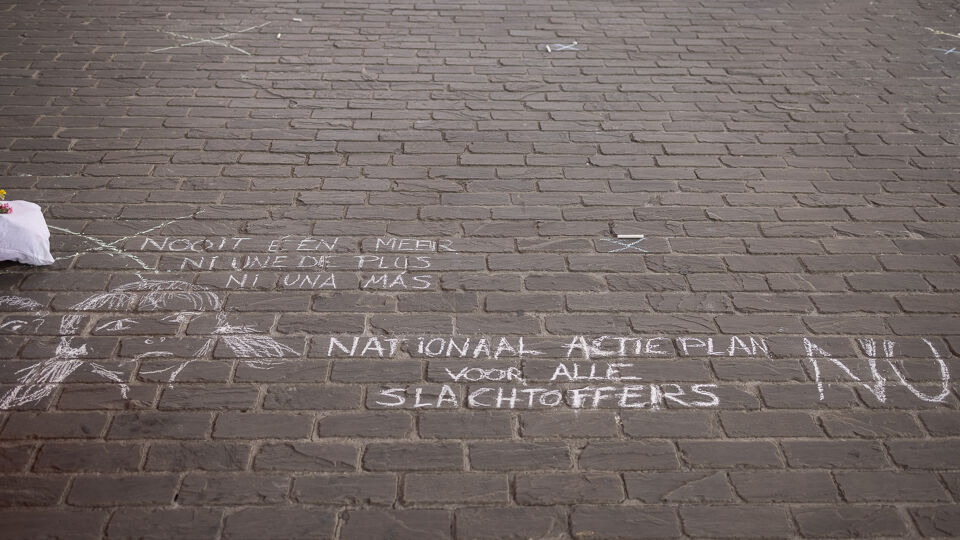 NOOIT ÉÉN MEER
NI UNE DE PLUS
NI UNA MÁS
NATIONAAL ACTIEPLAN NU
VOOR ALLE
SLACHTOFFERS